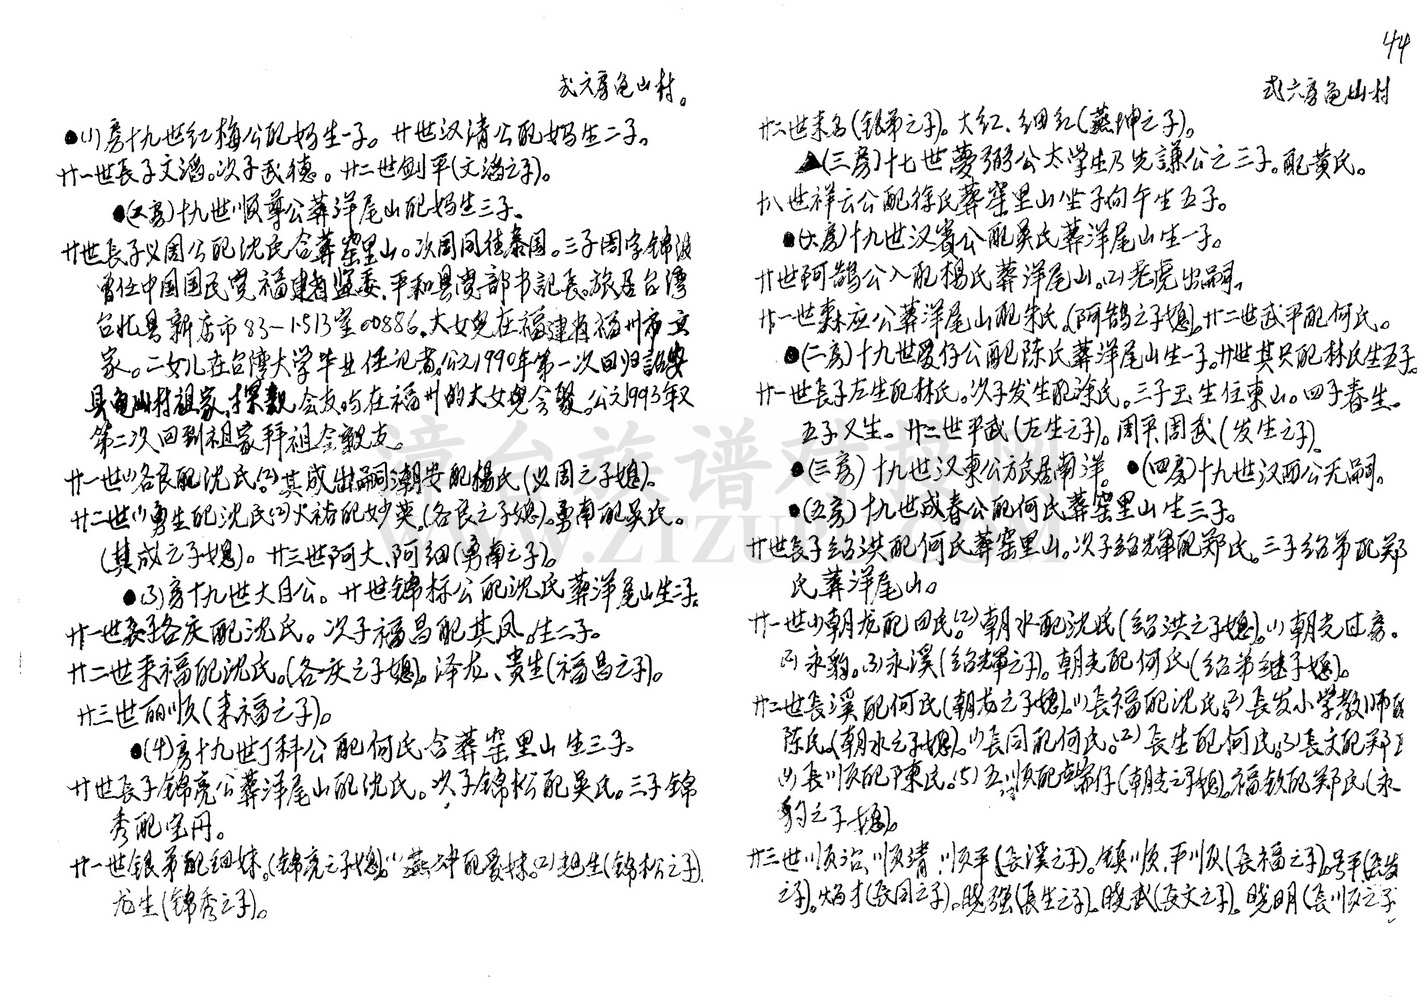 44
弍六房龟山村。
●(1)房十九世红梅公配妈生一子。廿世汉清公配妈生二子。
廿一世長子文滔。次子武德。廿二世剑平(文滔之子)。
●(2房)十九世顺尊公葬洋尾山配妈生三子。
廿世長子义周公配沈氏合葬窑里山。次周同往泰国。三子周字锦波
曾任中国国民党福建省监委、平和县党部书記長。旅居台湾
台北县新店市83-1513室00886。大女児在福建省福州市立
家。二女儿在台湾大学毕业任记者。公元1990年第一次回归詔安
县龟山村祖家,探親会友,与在福州的大女児会聚。公元1993年又
第二次回到祖家拜祖会親友。
廿一世(1)各良配沈氏(2)其成出嗣潮安配楊氏(义周之子媳)。
廿二世(1)勇生配沈氏(2)火祐配妙英。(各良之子媳)。勇南配吴氏。
(其成之子媳)。廿三世阿大、阿细(勇南之子)。
●(3)房十九世大目公。廿世锦标公配沈氏葬洋尾山生二子。
廿一世長子各庆配沈氏。次子福昌配其凤。生二子。
廿二世来福配沈氏。(各庆之子媳)。泽龙、贵生(福昌之子)。
廿三世丽顺(来福之子)。
●(4)房十九世丁科公配何氏合葬窑里山生三子。
廿世長子锦亮公葬洋尾山配沈氏。次子锦松配吴氏。三子锦
秀配宝丹。
廿一世银弟配细妹。(锦亮之子媳)。(1)燕坤配爱妹。(2)超生(锦松之子)。
龙生(锦秀之子)。
弍六房龟山村
廿二世来名(银弟之子)。大红、细红(燕坤之子)。
▲(三房)十七世夢弼公太学生乃先謙公之三子。配黄氏。
十八世祥云公配徐氏葬窑里山坐子向午生五子。
●(大房)十九世汉賓公配吴氏葬洋尾山生一子。
廿世阿鹄公入配楊氏葬洋尾山。(2)老虎出嗣。
廿一世森应公葬洋尾山配朱氏。(阿鹄之子媳)。廿二世武平配何氏。
●(二房)十九世爱仔公配陈氏葬洋尾山生一子。廿世其只配林氏生五子。
廿一世長子左生配林氏。次子发生配涂氏。三子玉生住東山。四子春生。
五子又生。廿二世平武(左生之子)。周平、周武(发生之子)。
●(三房)十九世汉東公旅居南洋。●(四房)十九世汉西公无嗣。
●(五房)十九世成春公配何氏葬窑里山生三子。
廿世長子绍洪配何氏葬窑里山。次子绍輝配郑氏。三子绍弟配郑
氏葬洋尾山。
廿一世(1)朝龙配田氏。(2)朝水配沈氏(绍洪之子媳)。(1)朝光过房。
(2)永豹。(3)永溪(绍輝之子)。朝光配何氏(绍弟继子媳)。
廿二世長溪配何氏(朝龙之子媳)。(1)長福配沈氏。(2)長发小学教师配
陈氏。(朝水之子媳)。(1)長同配何氏。(2)長生配何氏。(3)長文配郑氏
(4)長顺配陳氏。(5)五顺配仔(朝光之子媳)。福钦配郑氏(永
豹之子媳)。
廿三世顺治、顺清、顺平(長溪之子)。镇顺、平顺(長福之子)。平(長发
之子)。炳才(長同之子)。晓强(長生之子)。晓武(長文之子)。晓明(長顺之子
漳台族谱对接网
WWW.ZTZUPU.COM